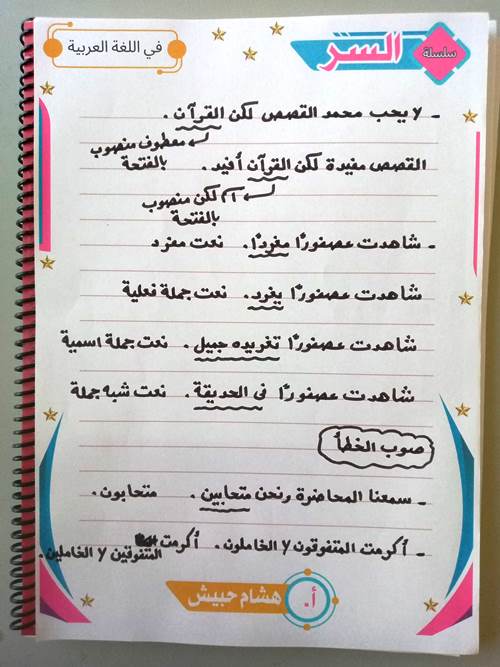 سلسلة السر في اللغة العربية
- لا يحب محمد القصص لكن القرآن.
معطوف منصوب بالفتحة
القصص مفيدة لكن القرآن أفيد.
اسم لكن منصوب بالفتحة
- شاهدت عصفورًا مغردًا. نعت مفرد
شاهدت عصفورًا يغرد. نعت جملة فعلية
شاهدت عصفورًا تغريده جميل. نعت جملة اسمية
شاهدت عصفورًا في الحديقة. نعت شبه جملة
صوب الخطأ
- سمعنا المحاضرة ونحن متحابين. متحابون.
- أكرمت المتفوقون لا الخاملون. أكرمت المتفوقين لا الخاملين.
أ. هشام حبيش